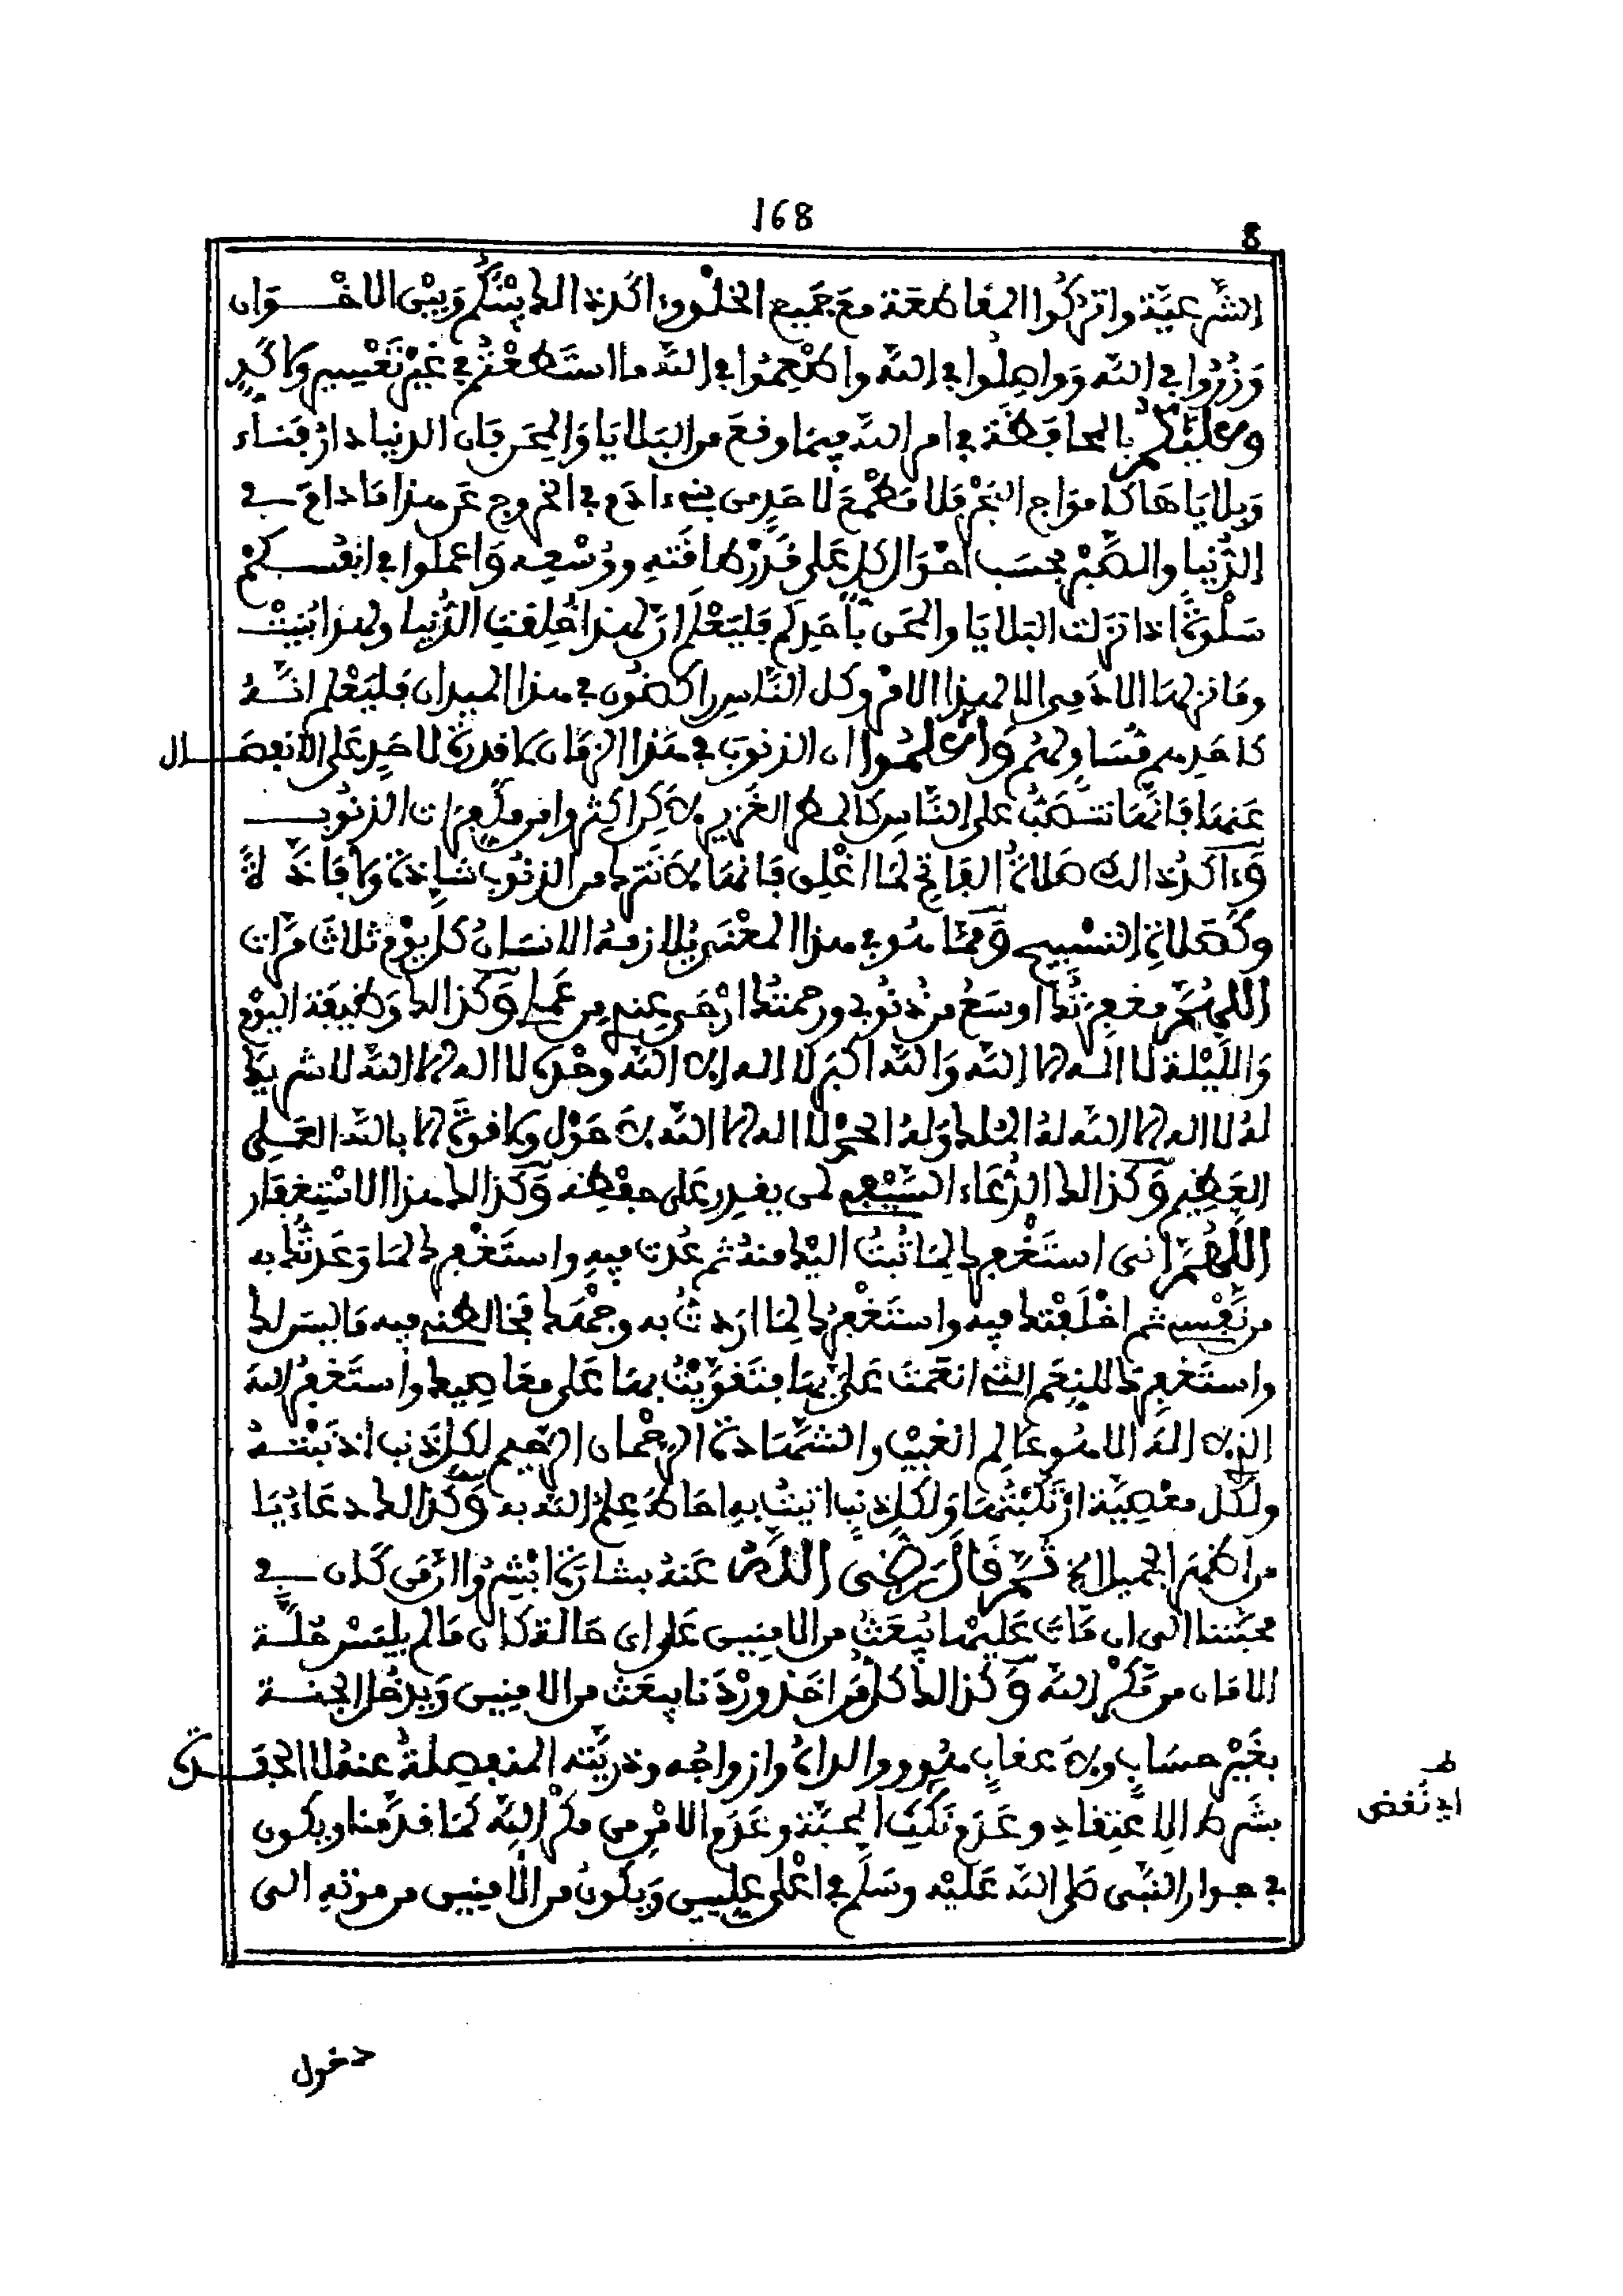 168
8
الشَّرعيَّة واتركُوا المقاطعَة معَ جَميع الخلْق وءاكَد ذالك بيْنَكُم وَبيْن الاخْـــوَان
وَزُورُوا في اللَّه وَوَاصِلُوا في اللَّه وأطْعِمُوا في اللَّه ما اسْتَطعْتُم في غيْر تَعْسِير وَلا كَدٍّ
وعَليْكُم بالمحافَظَة في امر اللَّه فيمَا وقعَ من البَلايَا وَالمِحَن فَان الدنيا دارُ فتنَةٍ
وَبلايَاهَا كامْوَاج البَحْر فلا مَطْمَعَ لاحَدٍ من بني ءادَم في الخروج عَن هذا مَا دامَ في
الدُّنيا والصَّبْر بحسَب احْوَال كل عَلى قدْر طاقَتِهِ ووُسْعِه وَاعملُوا في انفُسكمْ
سَلْوَةً اذا نزلت البَلايَا والمحَن بأحَدِكم فليَعْلَم انَّ لهذا خُلِقتِ الدُّنيا ولهذا بُنيَتْ
ومَا نزلهَا الادَمِي الا لهذا الامْر وكل النَّاس راكضُون في هذا الميدان فليَعْلم انَّــهُ
كاحَدهم مُسَاوٍ لهُم وَاعْلَمُوا ان الذنوبَ في هذا الزمَان لا قدرةَ لاحَدٍ عَلى الانفصَــال
عَنهَا فَانَّهَا تنْصَبُّ على النَّاس كالمطر الغَزير لاكن اكثرُوا من مكفِّرَات الذنُوب
وَءاكَدُ ذالك صَلاةُ الفَاتح لمَا اغْلِق فَانهَا لا تَترك من الذنُوب شَاذةً وَلا فَاذَّةً
وكَصَلاةِ التسْبيح وَممَّا هُو في هذا المعْنى يُلازمهُ الانسَانُ كل يوْم ثلاث مَرَّات
اللهُمَّ مغفِرتُكَ اوسَعُ من ذنُوبي ورحمتكَ ارْجَى عندي من عَملي وَكذالك وَظيفَة اليَوْم
وَاللَّيْلة لا الــه الا اللَّه وَاللَّه اكبَر لا اله الا اللَّه وحْدَه لا اله الا اللَّه لا شريكَ
لهُ لا اله الا اللَّه لهُ الملك وَلهُ الحمْد لا اله الا اللَّه وَلا حَوْل ولا قوةَ الا باللَّه العَلي
العَظِيم وَكذالك الدُّعَاء السَّيْفِي لمن يقدِر عَلى حفْظه وَكذالك هذا الاسْتِغفَار
اللَّهُمَّ انى استَغْفِرك لِمَا تُبتُ اليْك منهُ ثم عُدت فِيهِ واستَغْفِرك لمَا وَعَدتُّكَ به
من نَفْسِي ثم اخْلَفْتك فيه واستَغْفِرُك لِمَا ارَدتُ به وجْهَك فخالطَني فيه مَا ليسَ لك
واستَغفِرك للنِعَم التي انعَمتَ عَليَّ بهَا فتَقوَّيْتُ بهَا عَلى مَعَاصِيك واستَغْفِرُ اللهَ
الذي لا الهَ الا هُو عَالِم الغيْب والشَّهَادة الرحْمان الرحِيم لكل ذنب اذنَبْتــهُ
ولكُل معْصيَّة ارْتكَبْتُهَا وَلكل ذنبٍ اتيْتُ بهِ احَاطَ عِلمُ اللَّه به وَكذالك دعَاءُ يَا
من اظهَر الجميل الخ ثُمَّ قَالَ رَضِىَ اللهُ عَنهُ بشارَة ابْشِرُوا انَّ مَن كَان في
محبَّتنا الى ان مَاتَ عَليهْا يُبْعَثُ من الامِنين عَلى اى حَالة كان مَا لم يلبَسْ حُلَّــة
الامَان من مَكْر اللَّه وَكذالك كل مَن اخَذ وِرْدَنا يبعَث من الامِنين وَيدخُل الجنــة
بغَيْر حسَابٍ ولا عقابٍ هُو ووالدَاهُ وازواجُه وذريَّته المنفصِلةُ عنهُ لا الحفَــدَة
بشَرط الاعْتقادِ وعَدَم نَكْث المحَبَّة وعَدَم الامْن من مكْر اللَّه كمَا قدَّمْنا ويكون
في جوار النَّبى صَلى اللَّه عَليْه وسَلَّم في اعْلى عليين وَيكُونُ من الامِنين من موْتهِ الى
ط
اي نَقض
دخول